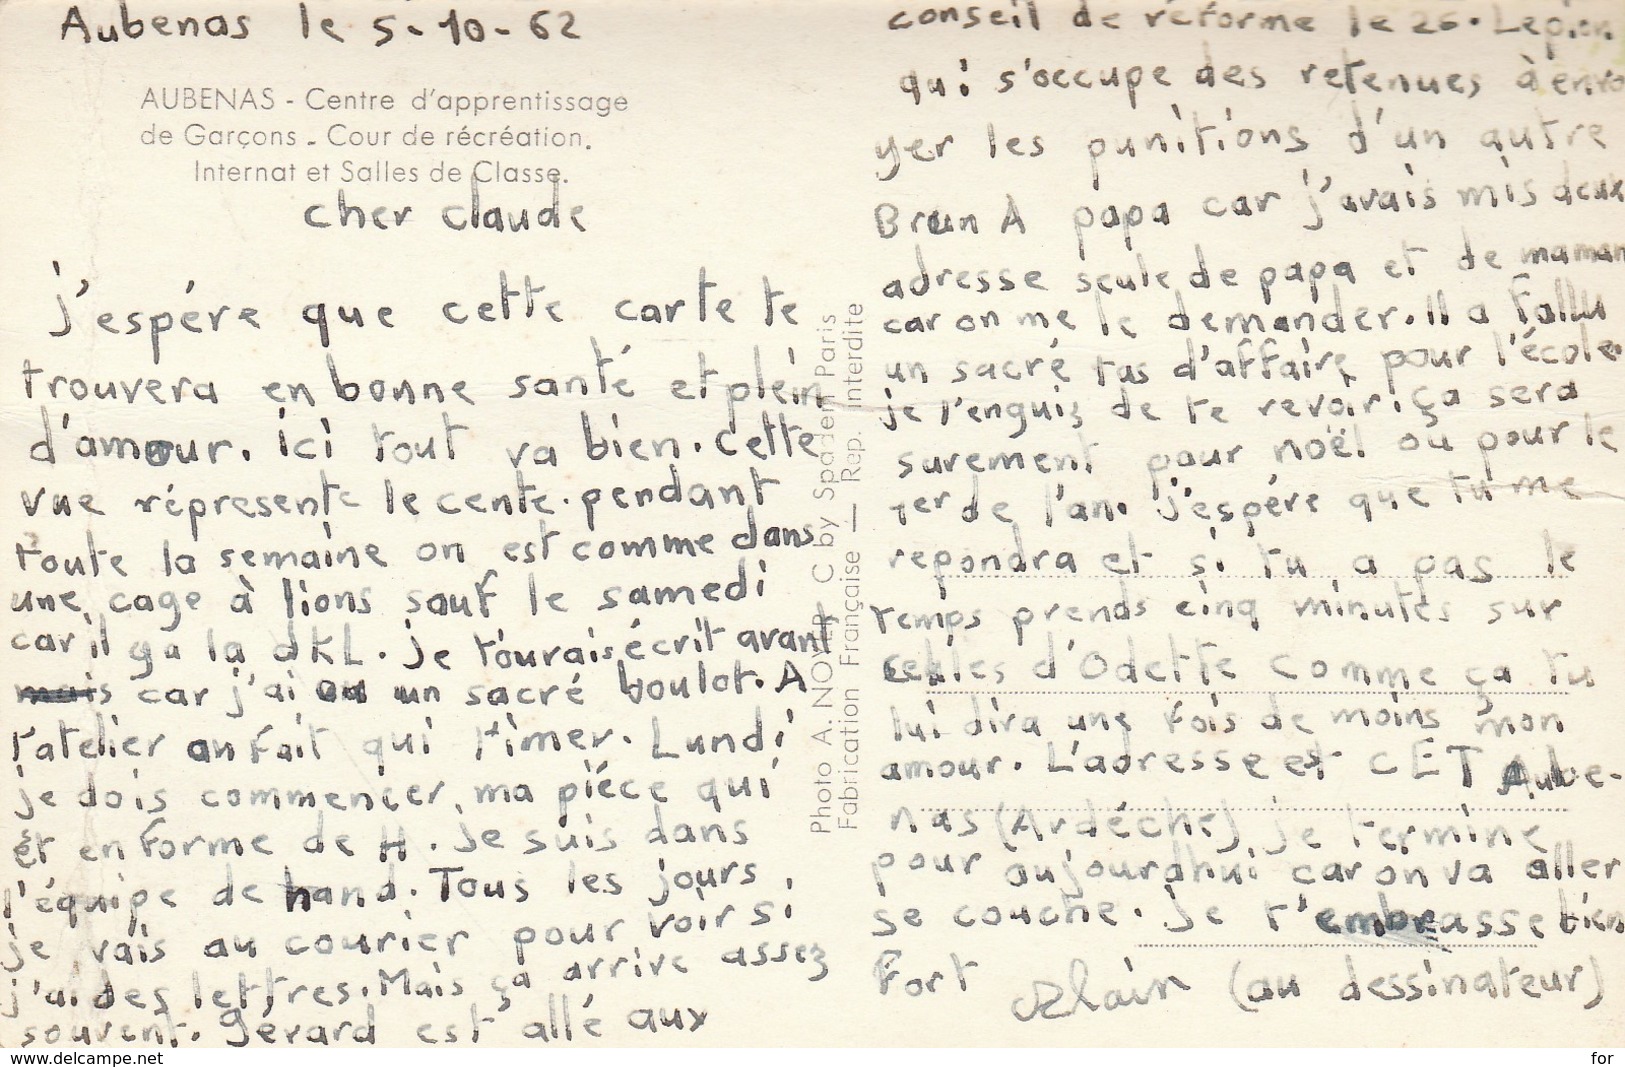 Aubenas le 5-10-62
AUBENAS - Centre d'apprentissage
de Garçons - Cour de récréation.
Internat et Salles de Classe.
cher claude
j'espére que cette carte te
trouvera en bonne santé et plein
d'amour. ici tout va bien. cette
vue répresente le cente. pendant
toute la semaine on est comme dans
une cage à lions sauf le samedi
car il ya la dKL. je t'ourais écrit avant
car j'ai un sacré boulot. A
l'atelier on fait qui limer. Lundi
je dois commencer, ma piéce qui
et en forme de H. je suis dans
l'équipe de hand. Tous les jours
je vais au courier pour voir si
j'ai des lettres. Mais ça arrive assez
souvent. Gérard est allé aux
Photo A. NOVER C by Spadem Paris
Fabrication Française — Rep. Interdite
conseil de réforme le 26. Lepion
qui s'occupe des retenues à envo
yer les punitions d'un autre
Brun A papa car j'avais mis deux
adresse seule de papa et de maman
car on me le demander. Il a fallu
un sacré tas d'affaire pour l'école.
je l'enguis de te revoir. ça sera
surement pour noël ou pour le
1er de l'an. j'espére que tu me
repondra et si tu a pas le
temps prends cinq minutes sur
celles d'Odette comme ça tu
lui dira une fois de moins mon
amour. L'adresse est CET Aube-
nas (Ardéche) je termine
pour aujourdhui car on va aller
se couche. je t'embrasse bien
fort Alain (au dessinateur)
www.delcampe.net
for